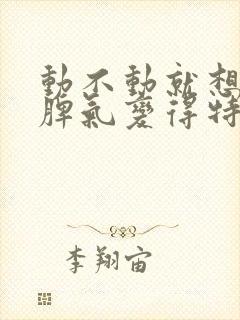 動不動就想
脾氣變得特
李翔宙